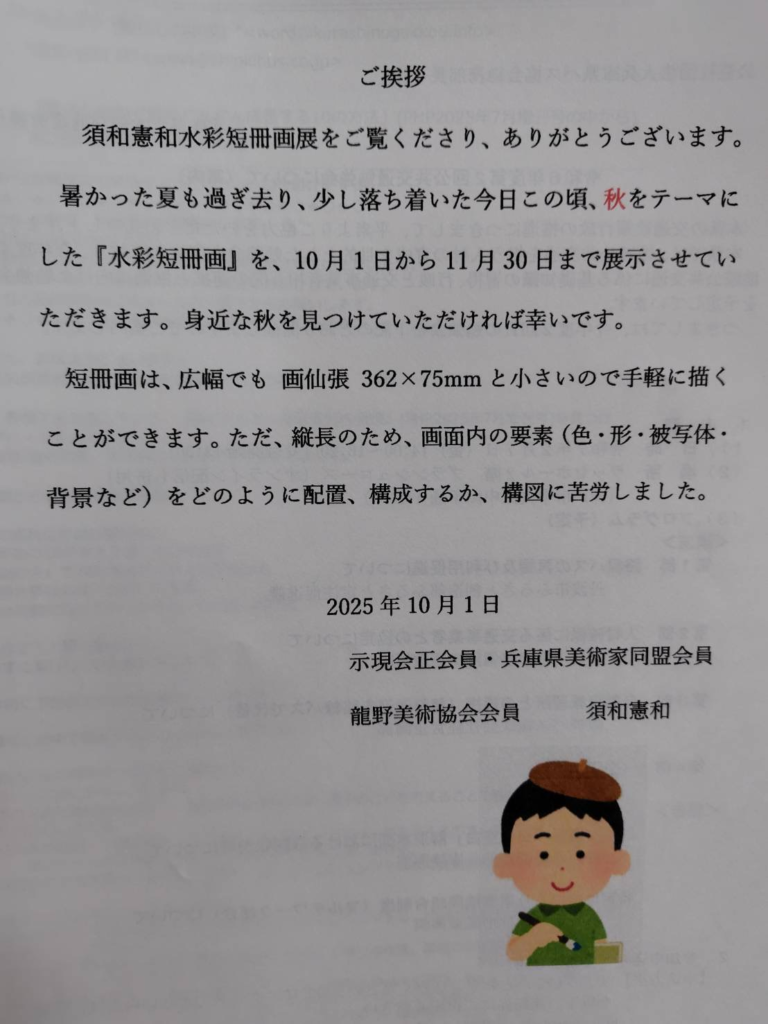 ご挨拶
須和憲和水彩短冊画展をご覧くださり、ありがとうございます。
暑かった夏も過ぎ去り、少し落ち着いた今日この頃、秋をテーマに
した『水彩短冊画』を、10月1日から11月30日まで展示させてい
ただきます。身近な秋を見つけていただければ幸いです。
短冊画は、広幅でも 画仙張 362×75mmと小さいので手軽に描く
ことができます。ただ、縦長のため、画面内の要素（色・形・被写体・
背景など）をどのように配置、構成するか、構図に苦労しました。
2025年10月1日
示現会正会員・兵庫県美術家同盟会員
龍野美術協会会員 須和憲和